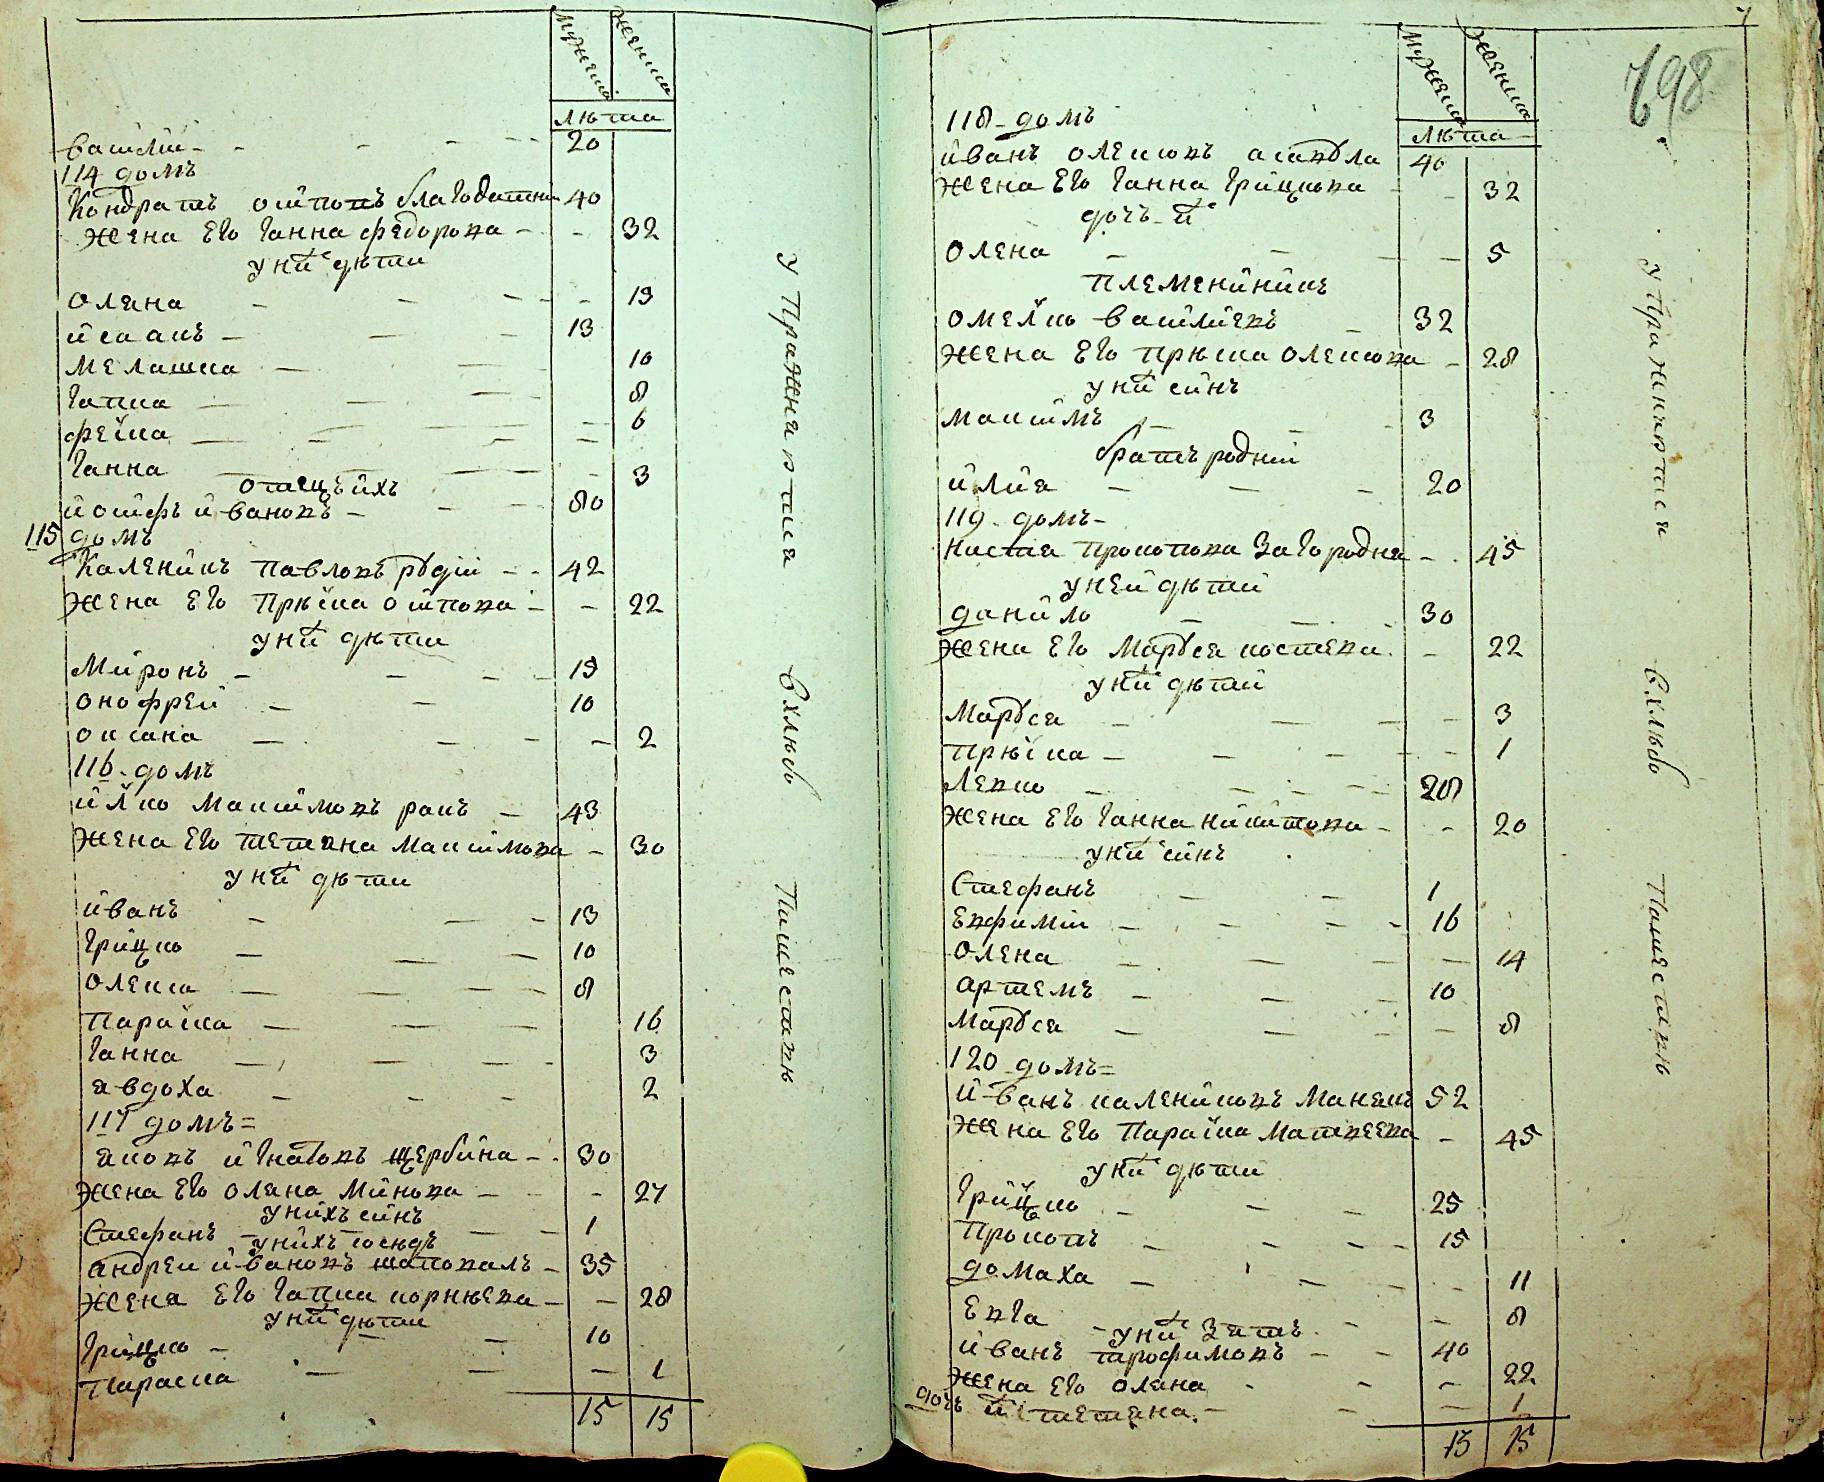 мужеска женска
лѣта
василій - - - - 20
114 домъ
Кондратъ осиповъ благодатни 40
жена его ганна федорова - - 32
у ниⷯ дѣти
олена - - - - 13
исаакъ - - - 13
мелашка - - - 10
гапка - - - 8
феска - - - - 6
ганна - - - - 3
отецъ ихъ
йосифъ ивановъ - - - 80
115 домъ
Каленикъ павловъ рудій - - 42
жена его Прѣска осипова - - 22
у ниⷯ дѣти
Миронъ - - - - 15
онофрей - - 10
оксана - - - - 2
116 домъ
илко максимовъ ракъ - 43
жена его тетяна максимова - 30
у ниⷯ дѣти
иванъ - - - 13
грицко - - - 10
олекса - - - 8
параска - - - 16
ганна - - - - 3
авдоха - - - 2
117 домъ=
яковъ игнатовъ щербина - - 30
жена его олена Минова - - - 27
у нихъ синъ
Стефанъ - - - 1
у нихъ сосѣдъ
андрей ивановъ шаповалъ - 35
жена его гапка корнѣева - - 28
у ниⷯ дѣти
грицко - - - 10
параска - - - 1
15 15
у Пражнявтся
в хлѣбо
Пашествѣ
698
мужеска женска
лѣта
118 - домъ
иванъ олексовъ
40
жена его ганна грицкова - - 32
дочъ иⷯ
олена - - - - 5
племенникъ
омелко василиевъ - 32
жена его прѣска олексова - 28
у ниⷯ синъ
максимъ - - - 3
братъ родній
илия - - - 20
119 - домъ -
настя прокопова Загородня - 45
у ней дѣтий
данило - - - 30
жена его Маруся костева - - 22
у ниⷯ дѣтий
Маруся - - - - 3
прѣска - - - - 1
Левко - - - - 28
жена его ганна никитова - - 20
у ниⷯ синъ
Стефанъ - - 1
Евфимій - - - - 16
олена - - - - 14
артемъ - - - 10
Маруся - - - - 8
120 домъ=
иванъ калениковъ 52
жена его Параска Матвеева - 45
у ниⷯ дѣти
грицко - - - 25
прокопъ - - - - 15
домаха - - - - 11
Евга - - - 8
у ниⷯ зять
иванъ трофимовъ - - 40
жена его олена - - - 22
дочъ иⷯ тетяна - - - 1
15 15
у Пражнявтся
в хлѣбо
Пашествѣ